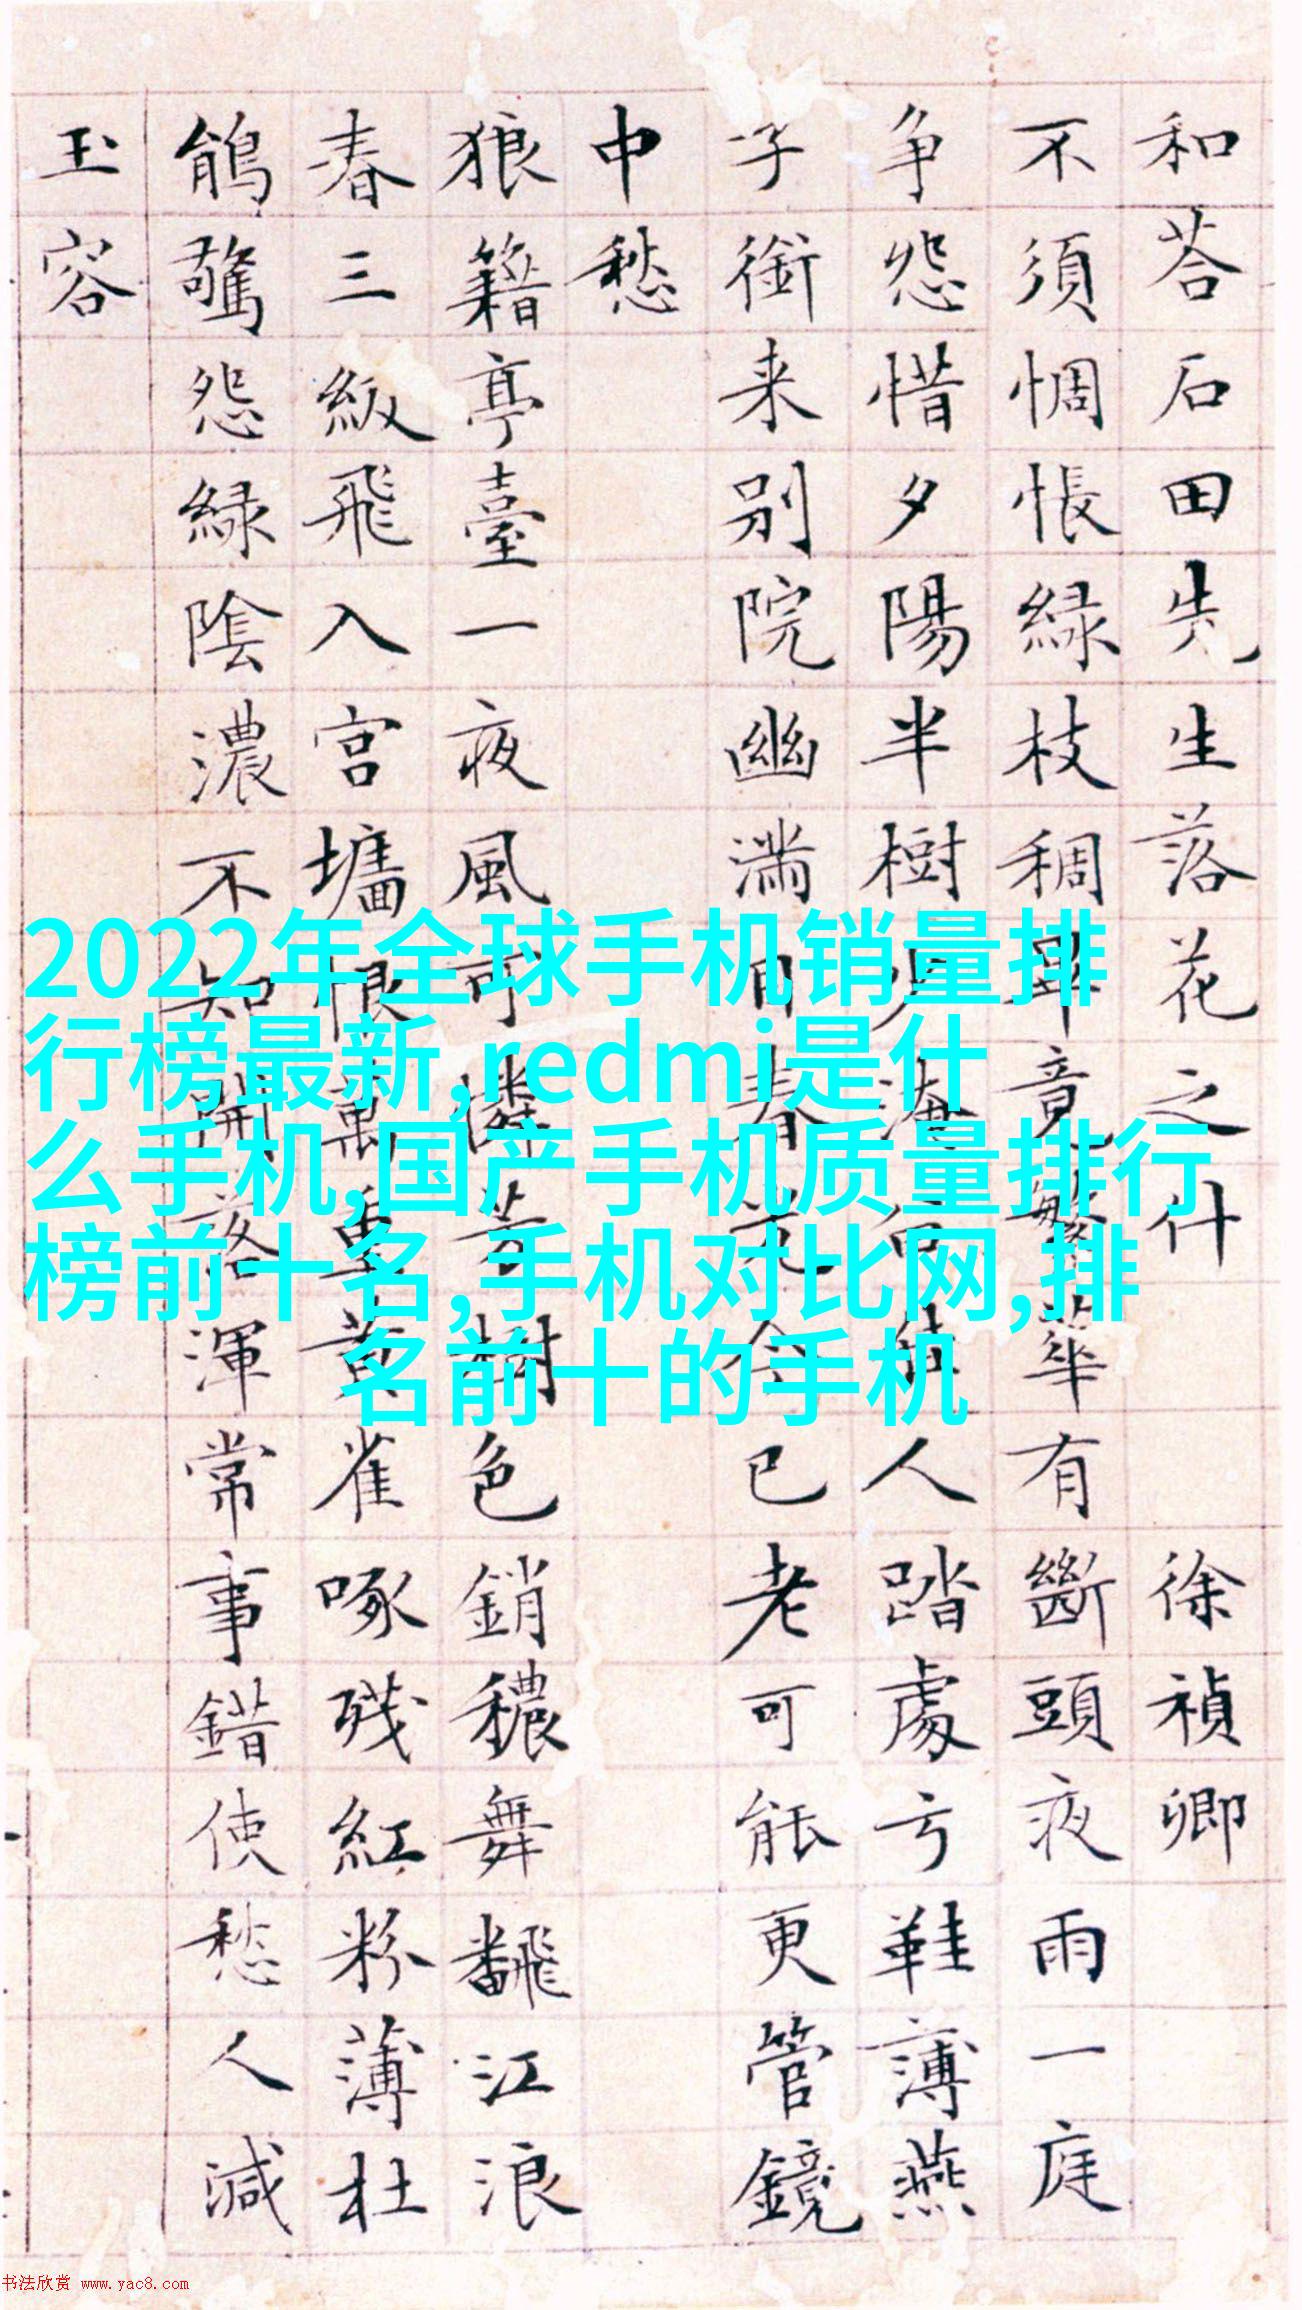 和荅石田先生落花之什 徐禎卿
不須惆悵綠枝稠畢竟繁華有斷頭夜雨一庭
争怨惜夕陽半樹少淹留佳人踏處弓鞋薄燕
子銜来別院幽滿目春光今已老可能更管鏡
中愁
狼籍亭臺一夜風可憐芳樹色銷穠舞飜江浪
春三級飛入宮墻恨萬重黃雀啄殘紅粉薄杜
鵑驚怨綠陰濃不知開落渾常事錯使愁人減
玉容
2022年全球手机销量排
行榜最新,redmi是什
么手机,国产手机质量排行
榜前十名,手机对比网,排
名前十的手机
书法欣赏 www.yac8.com